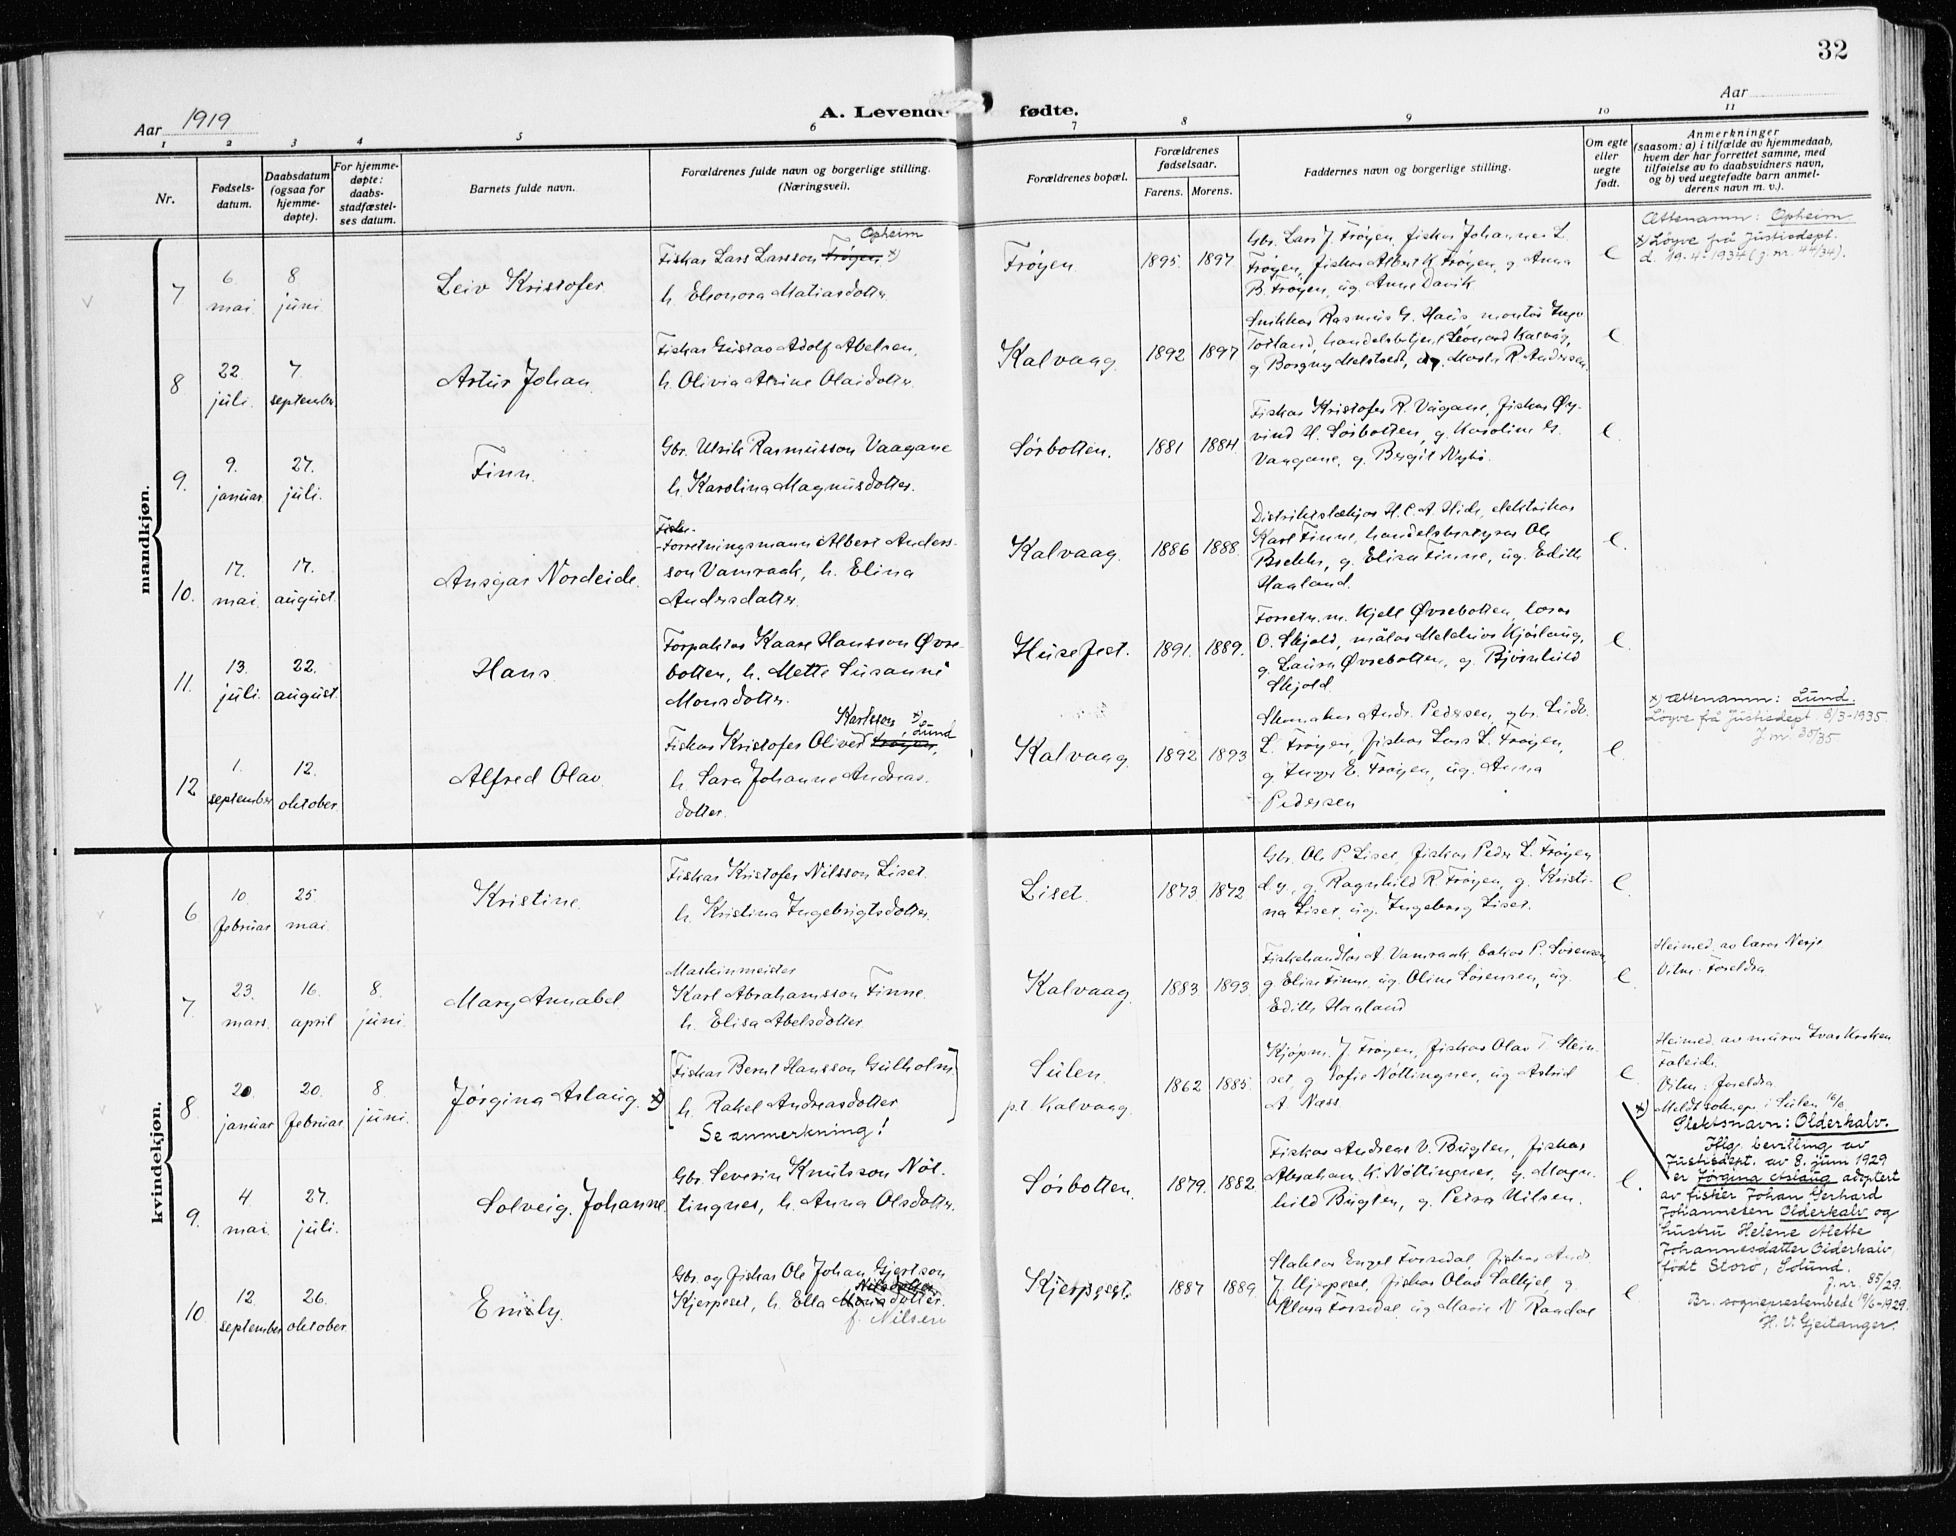 32
Aar 1919
A. Levende fødte.
Aar
1 2 3 4 5 6 7 8 9 10 11
Nr.
Fødsels-
datum.
Daabsdatum
(ogsaa for
hjemme-
døpte).
For hjemme-
døpte:
daabs-
stadfæstel-
ses datum.
Barnets fulde navn.
Forældrenes fulde navn og borgerlige stilling.
(Næringsvei).
Forældrenes bopæl.
Forældrenes
fødselsaar.
Farens. Morens.
Faddernes navn og borgerlige stilling.
Om egte
eller
uegte
født.
Anmerkninger
(saasom: a) i tilfælde av hjemmedaab,
hvem der har forrettet samme, med
tilføielse av to daabsvidners navn,
og b) ved uegtefødte barn anmel-
derens navn m. v.).
mandkjøn.
7
6
mai.
8
juni
Leiv Kristofer
Opheim
Fiskar Lars Larsson Frøyen x)
h. Elsonora Matiasdotter
Frøyen
1895. 1897
Gbr. Lars J. Frøyen, fiskar Johannes L.
Frøyen, fiskar Albert K. Frøyen, g. Anna
B. Frøyen, ug. Anne Davik
e
Ættenamn: Opheim
x) Løyve frå Justisdept.
d. 19-4-1934 (j. nr. 44/34).
8
22.
juli.
7.
september.
Artur Johan
Fiskar Gustav Adolf Abelsen,
h. Olivia Alvine Olaidotter
Kalvaag.
1892 1897
Snikkar Rasmus G. Haus, montør
handelsbetjent Leonard Kalvåg,
g. Borgny ug. Marta R. Andersen.
e
9.
9.
januar.
27.
juli.
Finn.
Gbr. Ulrik Rasmusson Vaagane
h. Karolina Magnusdotter.
Sørbotten.
1881 1884.
Fiskar Kristofer R. Vågane, fiskar Øy-
vind H. Sørbotten, g. Karoline G.
Vaagane, g. Bergit Nybø.
e.
10.
17.
mai.
17.
august.
Ansgar Nordeide.
Fisk-
Forretningsmann Albert Anders-
son Vamraak, h. Elina
Andersdatter.
Kalvaag.
1886 1888.
Distriktslækjar H. C. A. Hide, elektrikar
Karl Finne, handelsbestyrar Ole
g. Elisa Finne, ug. Edith
Haaland.
e.
11.
13.
juli.
22.
august.
Hans
Forpaktar Kaare Hansson Øvre-
botten, h. Mette Susanne
Monsdotter.
Husefest.
1891. 1889.
Forretn.m. Kjell Øvrebotten, lærar
O. Skjold, målar Melchior
g. Laura Øvrebotten, g. Bjørnhild
Skjold.
e.
12
1.
september
12.
oktober.
Alfred Olav.
Karlsson, x) Lund
Fiskar Kristofer Oliver Frøyen,
h. Sara Johanne Andreas-
dotter.
Kalvaag.
1892 1893
Skomaker Andr. Pedersen, gbr. Ludv.
L. Frøyen, fiskar Lars L. Frøyen,
g Inger E. Frøyen, ug. Anna
Pedersen
e
x) Ættenamn: Lund.
Løyve frå Justisdept. 8/3-1935
J. nr. 35/35
kvindekjøn.
6
10.
februar
25.
mai
Kristine
Fiskar Kristofer Nilsson Liset.
h. Kristina Ingebrigtsdotter.
Liset
1873 1872
Gbr. Ole P. Liset, fiskar Peder L. Frøyen
d.y., g. Ragnhild R. Frøyen, g. Kristi-
na Liset, ug. Ingeborg Liset.
e
7.
23.
mars.
16.
april
8.
juni.
Mary Annabel
Maskinmeister
Karl Abrahamsson Finne.
h. Elisa Abelsdotter
Kalvaag.
1883. 1893.
Fiskehandlar A. Vamraak, bakar P. Sørensen,
g. Elina Finne, ug. Oline Sørensen, ug.
Edith Haaland
e.
Heimed. av lærar Nesje
Vitn. Foreldra
8.
20.
januar
20.
februar
8.
juni.
Jørgina Aslaug. x)
[Fiskar Bernt Hansson Gulholm
h. Rakel Andreasdotter]
Se anmerkning!
Sulen.
p.t. Kalvaag.
1862 1885.
Kjøpm. J. Frøyen, fiskar Olav T. Stein-
set, g. Sofie Nøttingnes, ug Astrid
A. Næss
e.
Heimed. av murar Ivar
Vitn: foreldra
x) Meldt soknepr. i Sulen 16/6.
Slektsnavn: Olderkalv.
Iflg. bevilling av
Justisdept. av 8. juni 1929
er Jørgina Aslaug adoptert
av fisker Johan Gerhard
Johannesen Olderkalv og
hustru Helene Mette
Johannesdatter Olderkalv
født Storø, Solund.
J. nr. 85/29.
Br. sogneprestembede 19/6-1929.
H. V. Gjeitanger.
9.
4
mai
27.
juli.
Solveig. Johanne
Gbr. Severin Knutsson Nøt-
tingnes, h. Anna Olsdotter.
Sørbotten.
1879. 1882.
Fiskar Andreas V. Bugten, fiskar
Abraham K. Nøttingnes, g. Magn-
hild Bugten, g. Petra Nilsen.
e.
10.
12.
september
26.
oktober.
Emily.
Gbr. og fiskar Ole Johan Gjertson
Nilsdotter
Kjerpeset, h. Ella Monsdotter.
f. Nilsen
Kjerpeset.
1887 1889.
Slaktar Engel Førsdal, fiskar Andr.
J. Kjerpeset, fiskar Olav g.
Klara Førsdal, ug Marie N. Raadal
e.